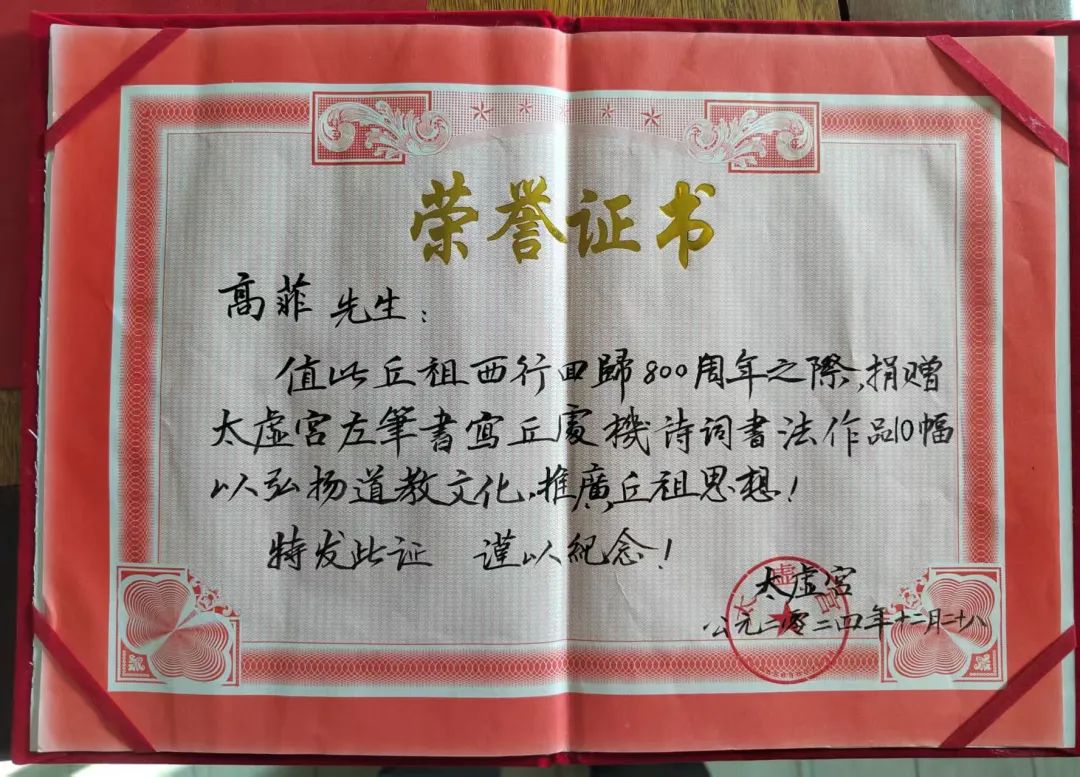 荣誉证书
高菲 先生：
值此丘祖西行回歸800周年之際，捐赠
太虚宫左筆書寫丘處機诗词書法作品10幅
以弘扬道教文化，推廣丘祖思想！
特发此证 谨以紀念！
太虚宫
公元二零二四年十二月二十八
太虚宫